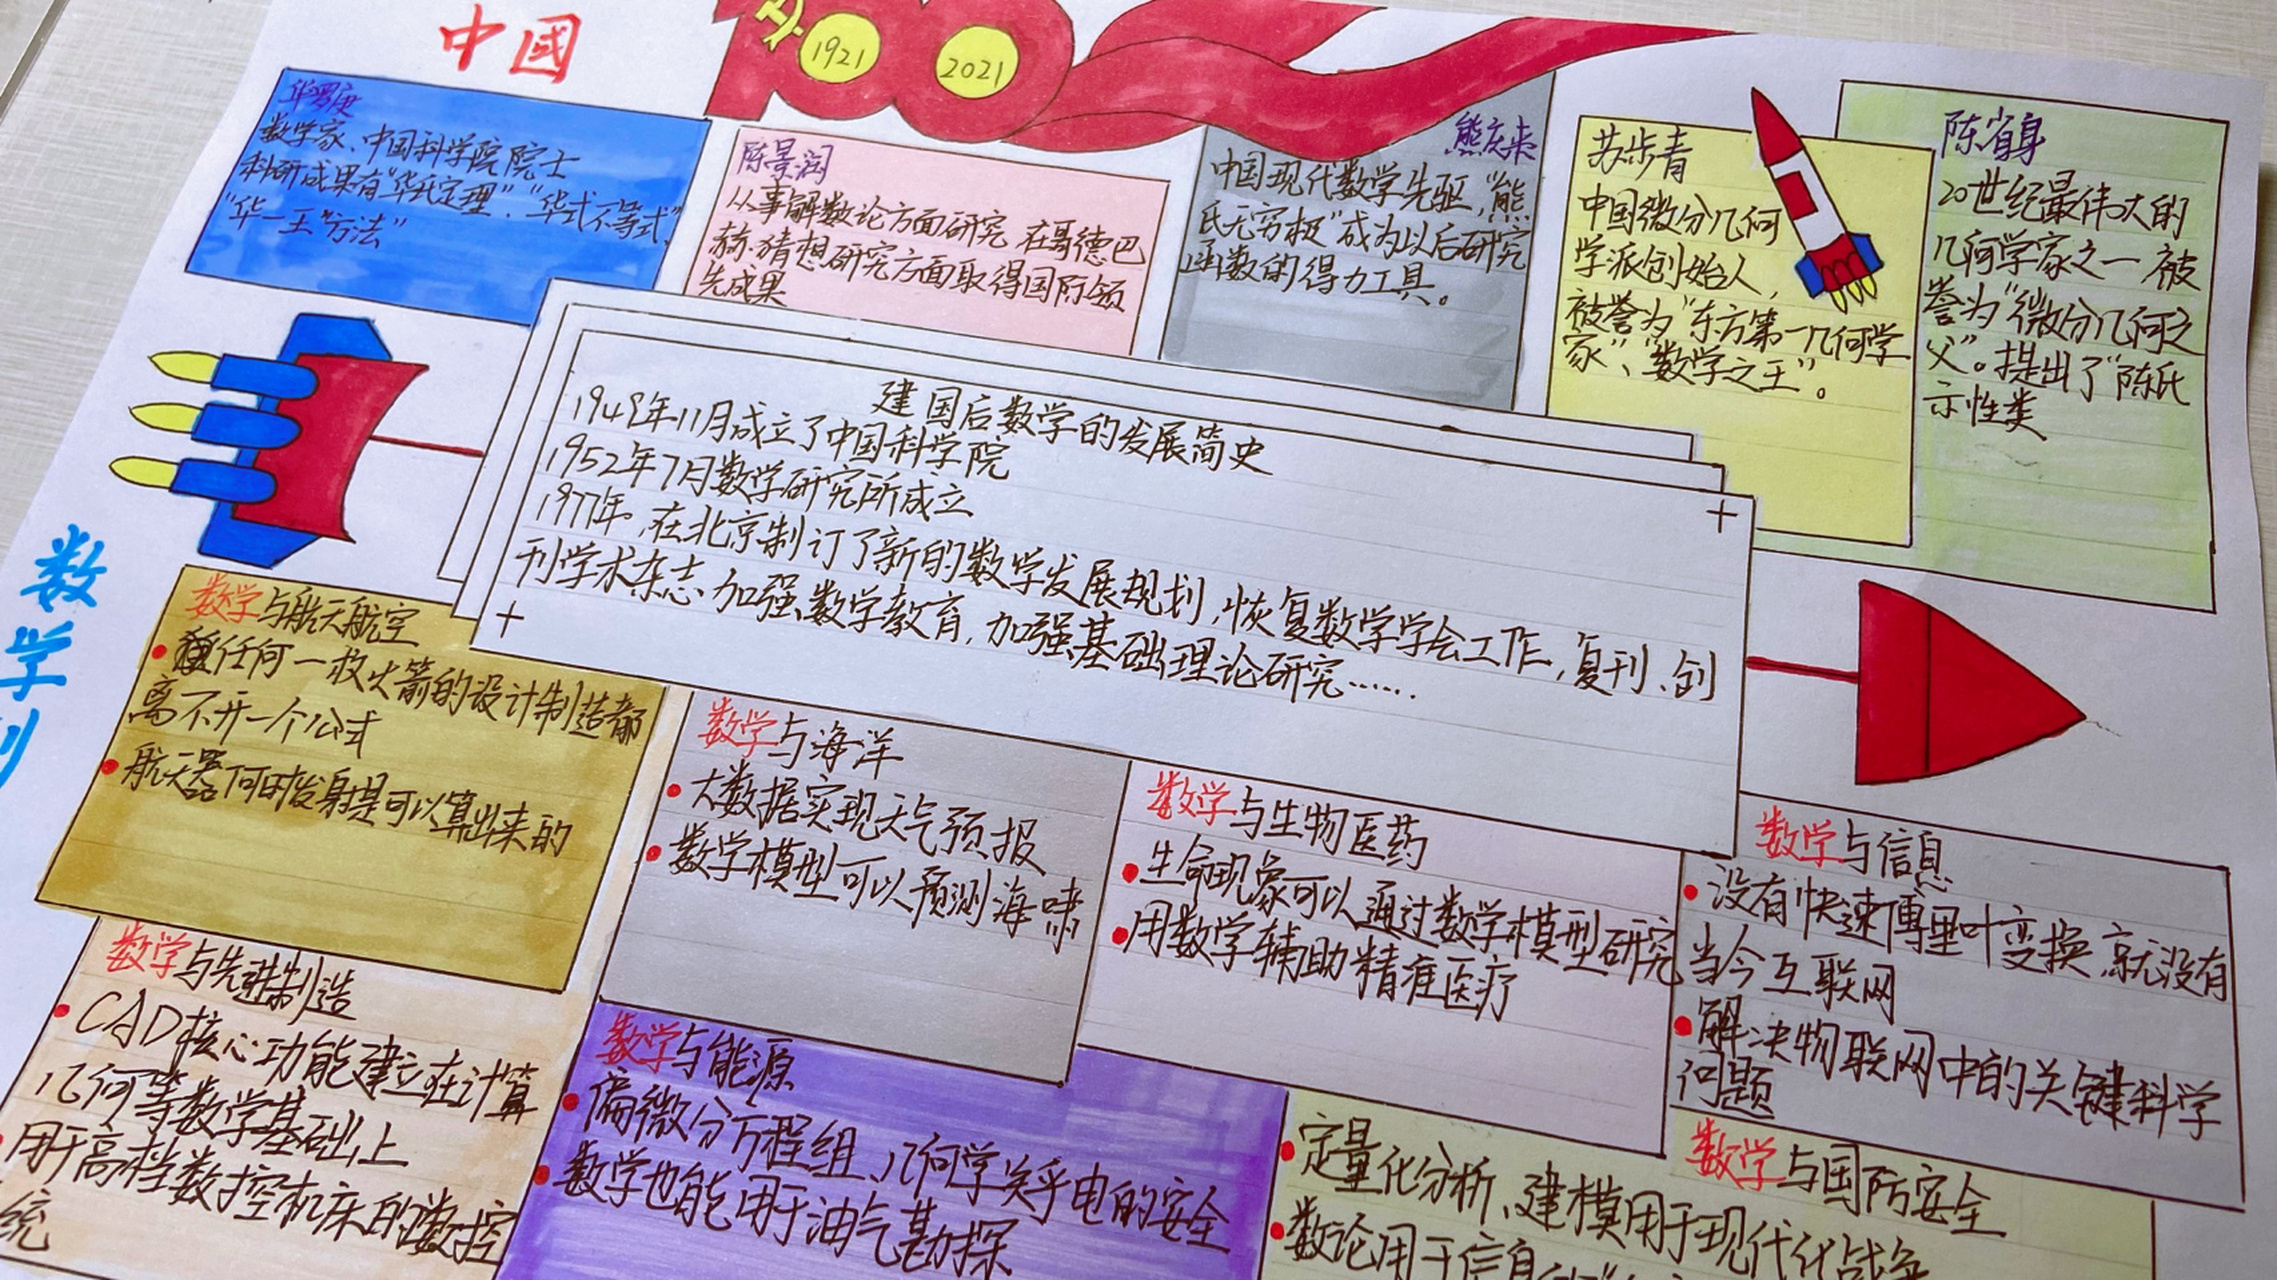 中國
1921
2021
华罗庚
数学家、中国科学院院士
科研成果有"华氏定理"、"华式不等式"、
"华一王"方法"
陈景润
从事解数论方面研究 在哥德巴
赫·猜想研究方面取得国际领
先成果
熊庆来
中国现代数学先驱,"熊
氏无穷极"成为以后研究
函数的得力工具。
苏步青
中国微分几何
学派创始人,
被誉为"东方第一几何学
家"、"数学之王"。
陈省身
20世纪最伟大的
几何学家之一 被
誉为"微分几何之
父"。提出了"陈氏
示性类
建国后数学的发展简史
1949年11月成立了中国科学院
1952年7月数学研究所成立
1977年,在北京制订了新的数学发展规划,恢复数学学会工作,复刊、创
刊学术杂志 加强数学教育,加强基础理论研究……
数学
数学与航天航空
任何一枚火箭的设计制造都
离不开一个公式
航天器何时发射是可以算出来的
数学与海洋
大数据实现天气预报
数学模型可以预测海啸
数学与生物医药
生命现象可以通过数学模型研究
用数学辅助精准医疗
数学与信息
没有快速傅里叶变换,就没有
当今互联网
解决物联网中的关键科学
问题
数学与先进制造
CAD核心功能建立在计算
几何等数学基础上
用于高档数控机床的数控
统
数学与能源
偏微分方程组、几何学关乎电的安全
数学也能用于油气勘探
数学与国防安全
定量化分析、建模用于现代化战争
数论用于信息